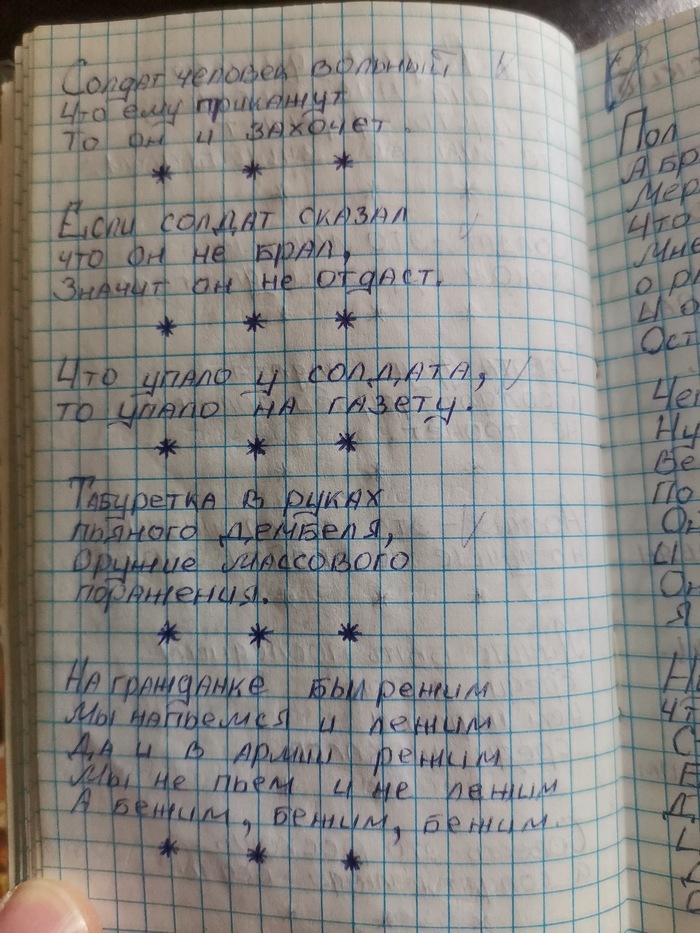 Солдат человек вольный
что ему прикажут
то он и захочет.
* * *
Если солдат сказал
что он не брал,
Значит он не отдаст.
* * *
Что упало у солдата,
то упало на газету.
* * *
Табуретка в руках
пьяного дембеля,
Оружие массового
поражения.
* * *
На гражданке был режим
Мы напьемся и лежим
Да и в армии режим
Мы не пьем и не лежим
А бежим, бежим, бежим.
* * *
Пол
А бр
Мер
Что
Мне
о р
И о
Ост
Чег
Ну
Ве
По
Он
И
Он
Я
Н
чт
С
Е
Д